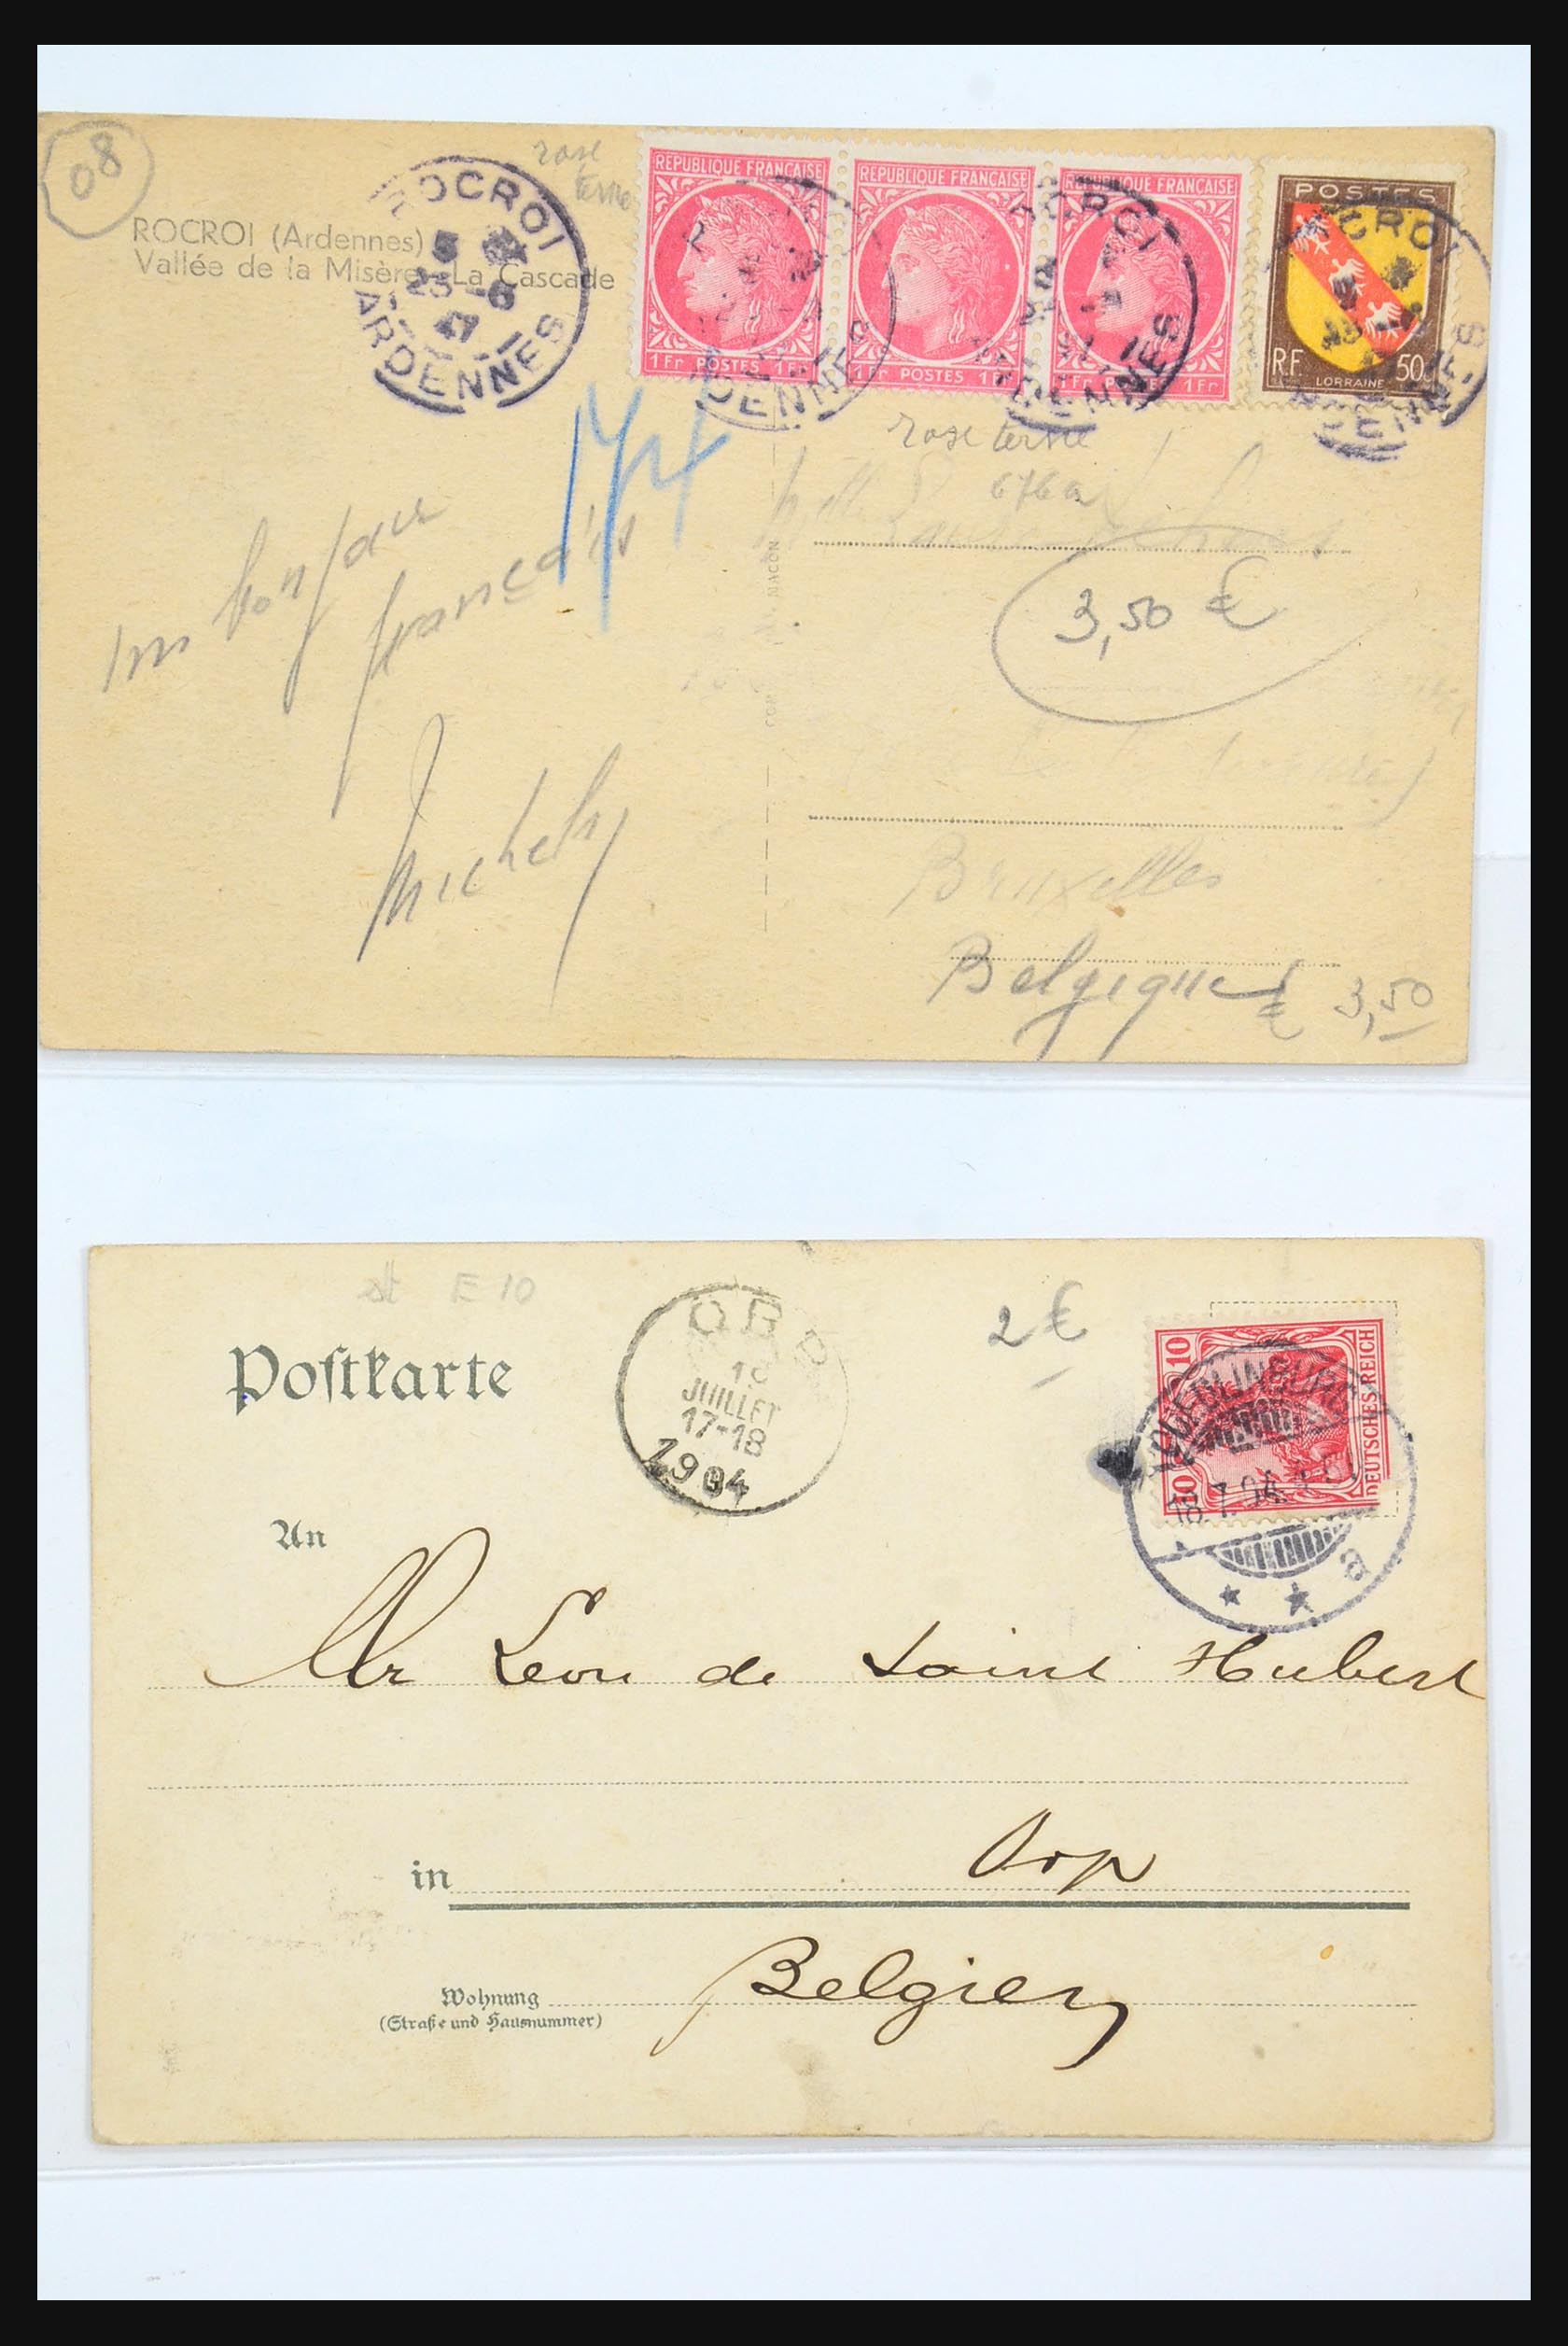 08
rose
terne
ROCROI (Ardennes)
Vallée de la Misère - La Cascade
ROCROI
23 -6
47
ARDENNES
RÉPUBLIQUE FRANÇAISE
1Fr POSTES 1Fr
RÉPUBLIQUE FRANÇAISE
1Fr POSTES 1Fr
RÉPUBLIQUE FRANÇAISE
1Fr POSTES 1Fr
POSTES
R.F. 50c
LORRAINE
rose terne
676a
un bonjour
français
3,50 €
MACON
Bruxelles
Belgique
€ 3,50
E 10
2 €
Postkarte
ORP
JUILLET
17-18
1904
10 10
DEUTSCHES REICH
QUEDLINBURG
18.7.04.
a
An
Mr Leon de Saint Hubert
in Orp
Belgien
Wohnung
(Straße und Hausnummer)